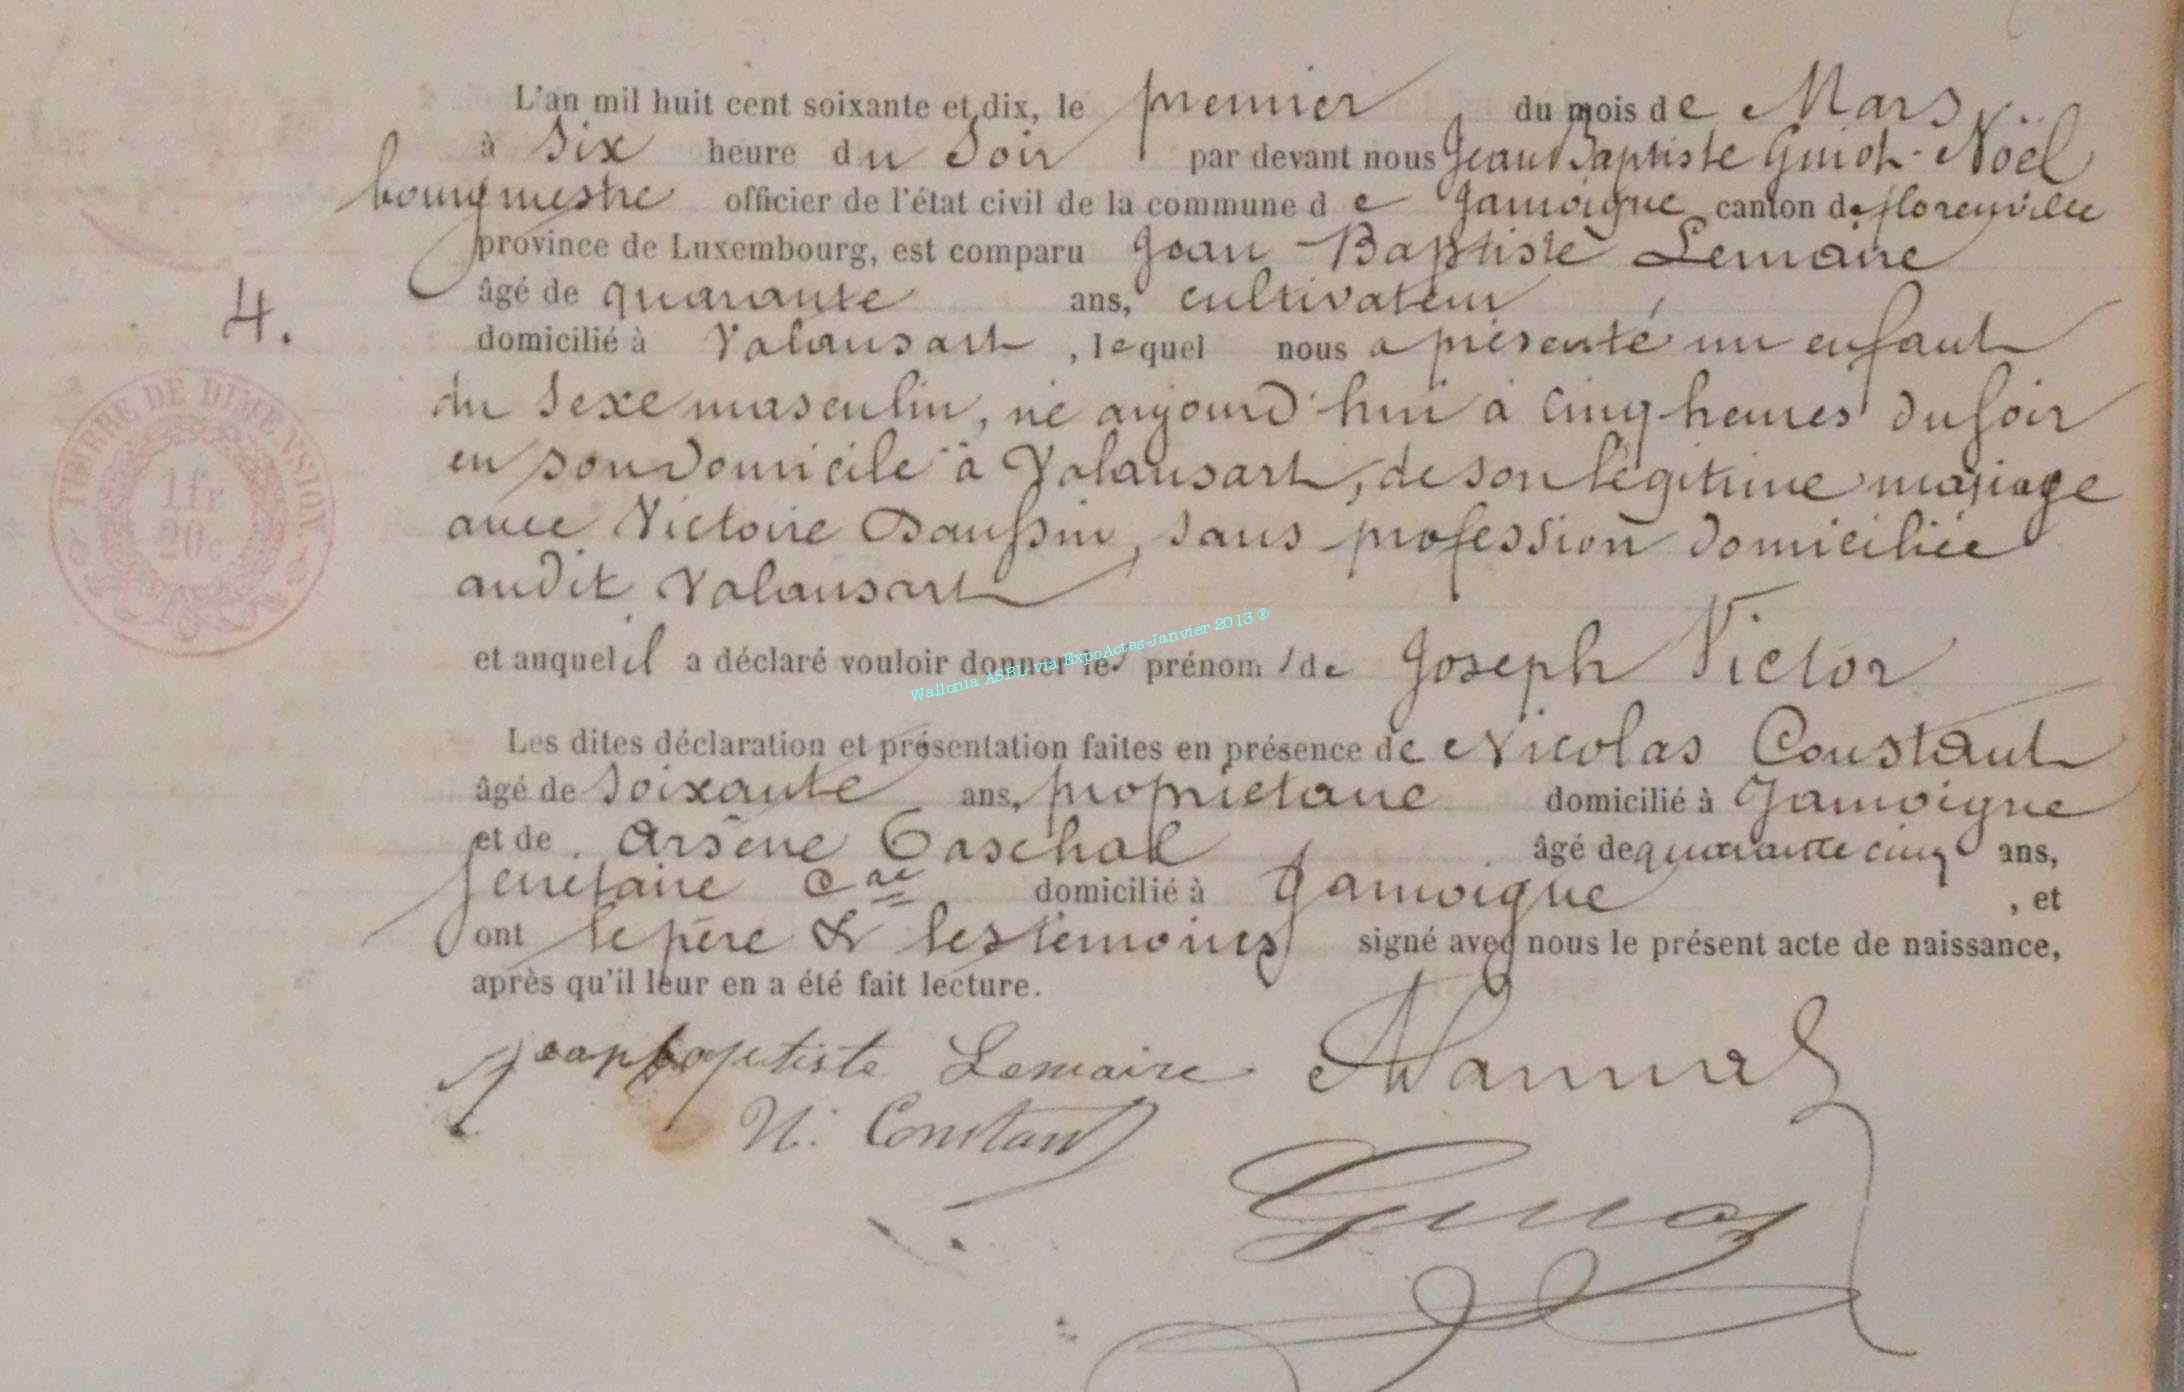 L'an mil huit cent soixante et dix, le premier du mois de Mars
à Six heure du Soir par devant nous Jean Baptiste Guiot-Noël
bourgmestre officier de l'état civil de la commune de Jamoigne canton de florenville
province de Luxembourg, est comparu Jean Baptiste Lemaire
âgé de quarante ans, cultivateur
4.
domicilié à Valansart, lequel nous a présenté un enfant
TIMBRE DE DIMENSION
1 fr
20 c
du Sexe masculin, né aujourd'hui à cinq heures du soir
en son domicile à Valansart, de son légitime mariage
avec Victoire Saussin, sans profession domiciliée
audit Valansart
et auquel il a déclaré vouloir donner les prénoms de Joseph Victor
Wallonia ASBL via ExpoActes-Janvier 2013 ®
Les dites déclaration et présentation faites en présence de Nicolas Constant
âgé de Soixante ans, propriétaire domicilié à Jamoigne
et de Arsène Paschal âgé de quarante cinq ans,
secrétaire Cal domicilié à Jamoigne, et
ont le père & les témoins signé avec nous le présent acte de naissance,
après qu'il leur en a été fait lecture.
Jean baptiste Lemaire
N. Constant